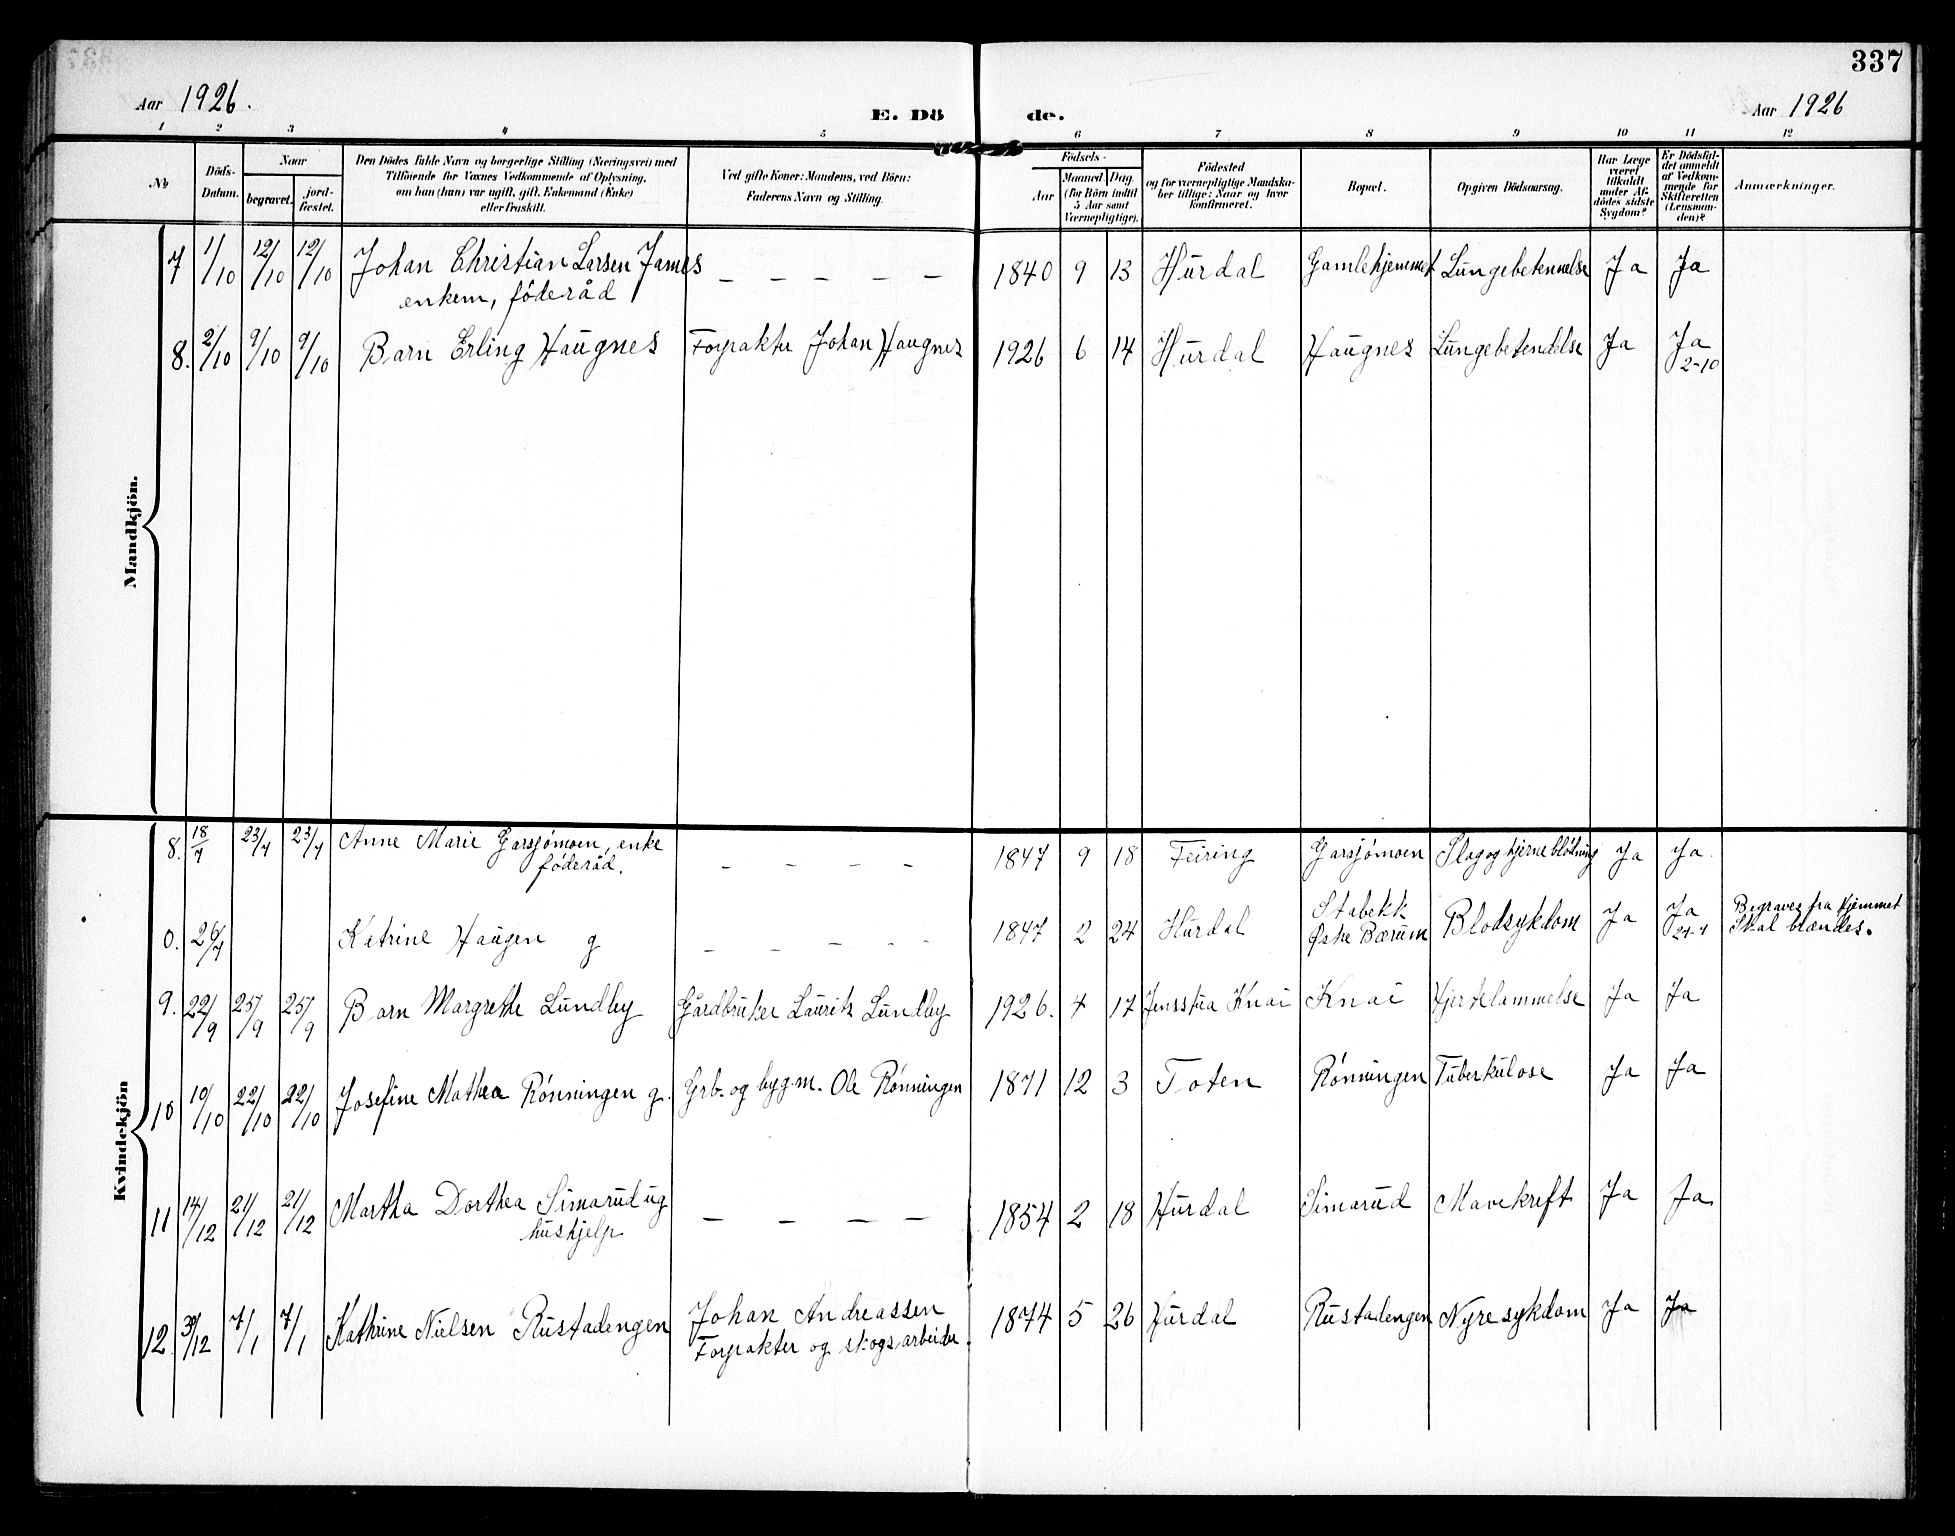 337
Aar 1926.
E. Dö de.
Aar 1926
1 2 3 4 5 6 7 8 9 10 11 12
№
Döds-
Datum.
Naar
begravet.
jord-
fæstet.
Den Dödes fulde Navn og borgerlige Stilling (Næringsvei) med
Tilföiende for Voxnes Vedkommende af Oplysning,
om han (hun) var ugift, gift, Enkemand (Enke)
eller fraskilt.
Ved gifte Koner: Mandens, ved Börn:
Faderens Navn og Stilling.
Födsels-
Aar
Maaned. Dag.
(for Börn indtil
5 Aar samt
Værnepligtige).
Födested
og for værnepligtige Mandska-
ber tillige: Naar og hvor
konfirmeret.
Bopæl.
Opgiven Dödsaarsag.
Har Læge
været
tilkaldt
under Af-
dödes sidste
Sygdom?
Er Dödsfal-
det anmeldt
af Vedkom-
mende for
Skifteretten
(Lensman-
den)?
Anmærkninger.
Mandkjön.
7 1/10 12/10 12/10 Johan Christian Larsen James — — — — — 1840 9 13 Hurdal Gamlehjemmet Lungebetennelse Ja Ja
enkem, føderåd
8. 2/10 9/10 9/10 Barn Erling Haugnes Forpakter Johan Haugnes 1926 6 14 Hurdal Haugnes Lungebetendelse Ja Ja
2-10
Kvindekjön
8. 18/7 23/7 23/7 Anne Marie Garsjømoen, enke — — — — 1847 9 18 Feiring Garsjømoen Slag og hjerneblødning Ja Ja.
føderåd.
0. 26/7 Katrine Haugen g — — — — — 1847 2 24 Hurdal Stabekk
Østre Bærum Blodsykdom Ja Ja
24-7 Begraves fra hjemmet
Skal brændes.
9. 22/9 25/9 25/9 Barn Margrethe Lundby Gårdbruker Laurits Lundby 1926. 4 17 Knai Knai Hjertelammelse Ja Ja
10 10/10 22/10 22/10 Josefine Mathea Rønningen g. Grb. og bygm. Ole Rønningen 1871 12 3 Toten Rønningen Tuberkulose Ja Ja
11 14/12 21/12 21/12 Martha Dorthea Simarud ug — — — — 1854 2 18 Hurdal Simarud Mavekreft Ja Ja
hushjelp
12 30/12 7/1 7/1 Kathrine Nielsen Rustadengen Johan Andreassen
Forpakter og skogsarbeider. 1874 5 26 Hurdal Rustadengen Nyresykdom Ja Ja